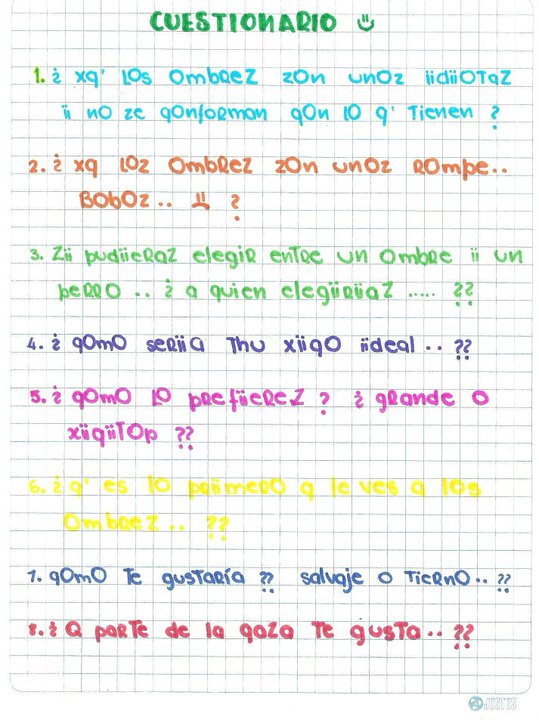 CUESTIONARIO Ü
1. ¿ xq' LOs OmbReZ zOn unOz iidiiOTaZ
ii nO ze qOnfoRman qOn lO q' Tienen ?
2. ¿ xq LOz OmbReZ zOn unOz ROmpe..
BObOZ.. ?
3. Zii pudiieRaZ elegiR enTRe un OmbRe ii un
peRRO .. ¿ a quien elegiiRiiaZ ..... ??
4. ¿ qOmO seRiia Thu xiiqO iideal .. ??
5. ¿ qOmO LO pRefiieReZ ? ¿ gRande O
xiiqiiTOp ??
6. ¿ q' es lO pRiimeRO q le ves a lOs
OmbReZ .. ??
7. qOmO Te gusTaRía ?? salvaje O TieRnO.. ??
8. ¿ Q paRTe de la qaza Te gusTa.. ??
JUSTIS